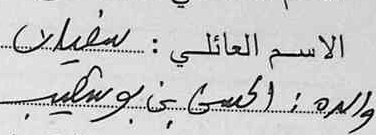 الاسم العائلي : سفيان
والده : الحسن بن بوشعيب